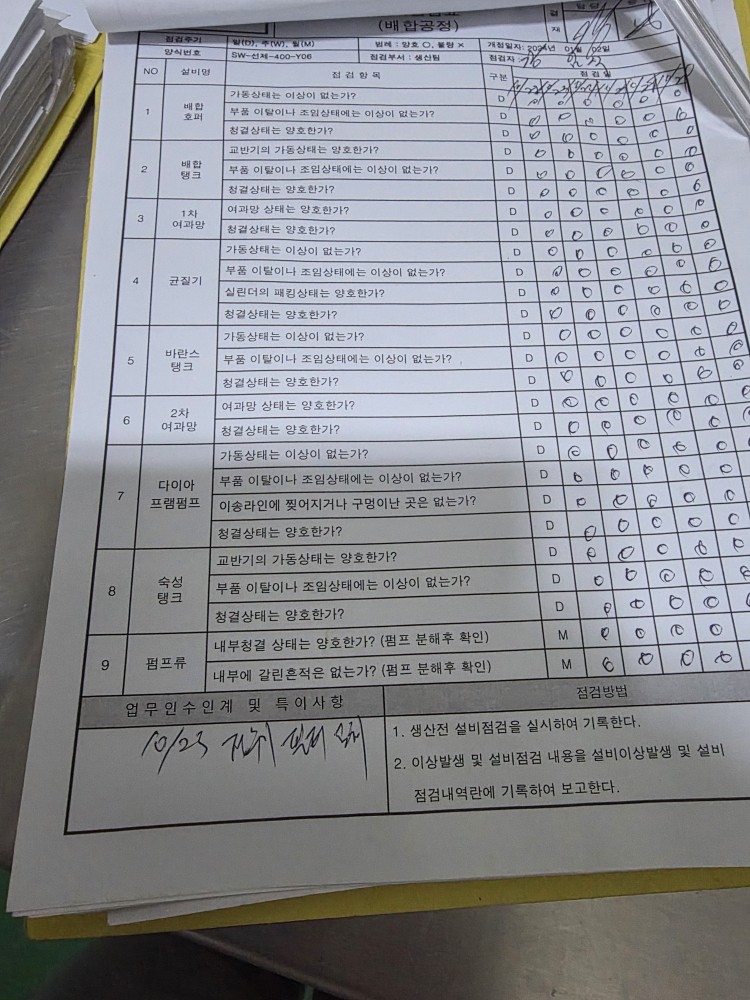 (배합공정)
결재
담당
점검주기 일(D), 주(W), 월(M) 범례 : 양호 O, 불량 X 개정일자: 2024년 01월 02일
양식번호 SW-선체-400-Y06 점검부서 : 생산팀 점검자 :
NO 설비명 점검항목 구분 점검일
1 배합호퍼 가동상태는 이상이 없는가? D
부품 이탈이나 조임상태에는 이상이 없는가? D
청결상태는 양호한가? D
2 배합탱크 교반기의 가동상태는 양호한가? D
부품 이탈이나 조임상태에는 이상이 없는가? D
청결상태는 양호한가? D
3 1차 여과망 여과망 상태는 양호한가? D
청결상태는 양호한가? D
4 균질기 가동상태는 이상이 없는가? D
부품 이탈이나 조임상태에는 이상이 없는가? D
실린더의 패킹상태는 양호한가? D
청결상태는 양호한가? D
5 바란스탱크 가동상태는 이상이 없는가? D
부품 이탈이나 조임상태에는 이상이 없는가? D
청결상태는 양호한가? D
6 2차 여과망 여과망 상태는 양호한가? D
청결상태는 양호한가? D
7 다이아프램펌프 가동상태는 이상이 없는가? D
부품 이탈이나 조임상태에는 이상이 없는가? D
이송라인에 찢어지거나 구멍이난 곳은 없는가? D
청결상태는 양호한가? D
8 숙성탱크 교반기의 가동상태는 양호한가? D
부품 이탈이나 조임상태에는 이상이 없는가? D
청결상태는 양호한가? D
9 펌프류 내부청결 상태는 양호한가? (펌프 분해후 확인) M
내부에 갈린흔적은 없는가? (펌프 분해후 확인) M
업무인수인계 및 특이사항 점검방법
10/23
1. 생산전 설비점검을 실시하여 기록한다.
2. 이상발생 및 설비점검 내용을 설비이상발생 및 설비
점검내역란에 기록하여 보고한다.